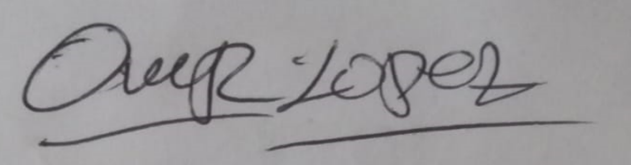 Omar Lopez